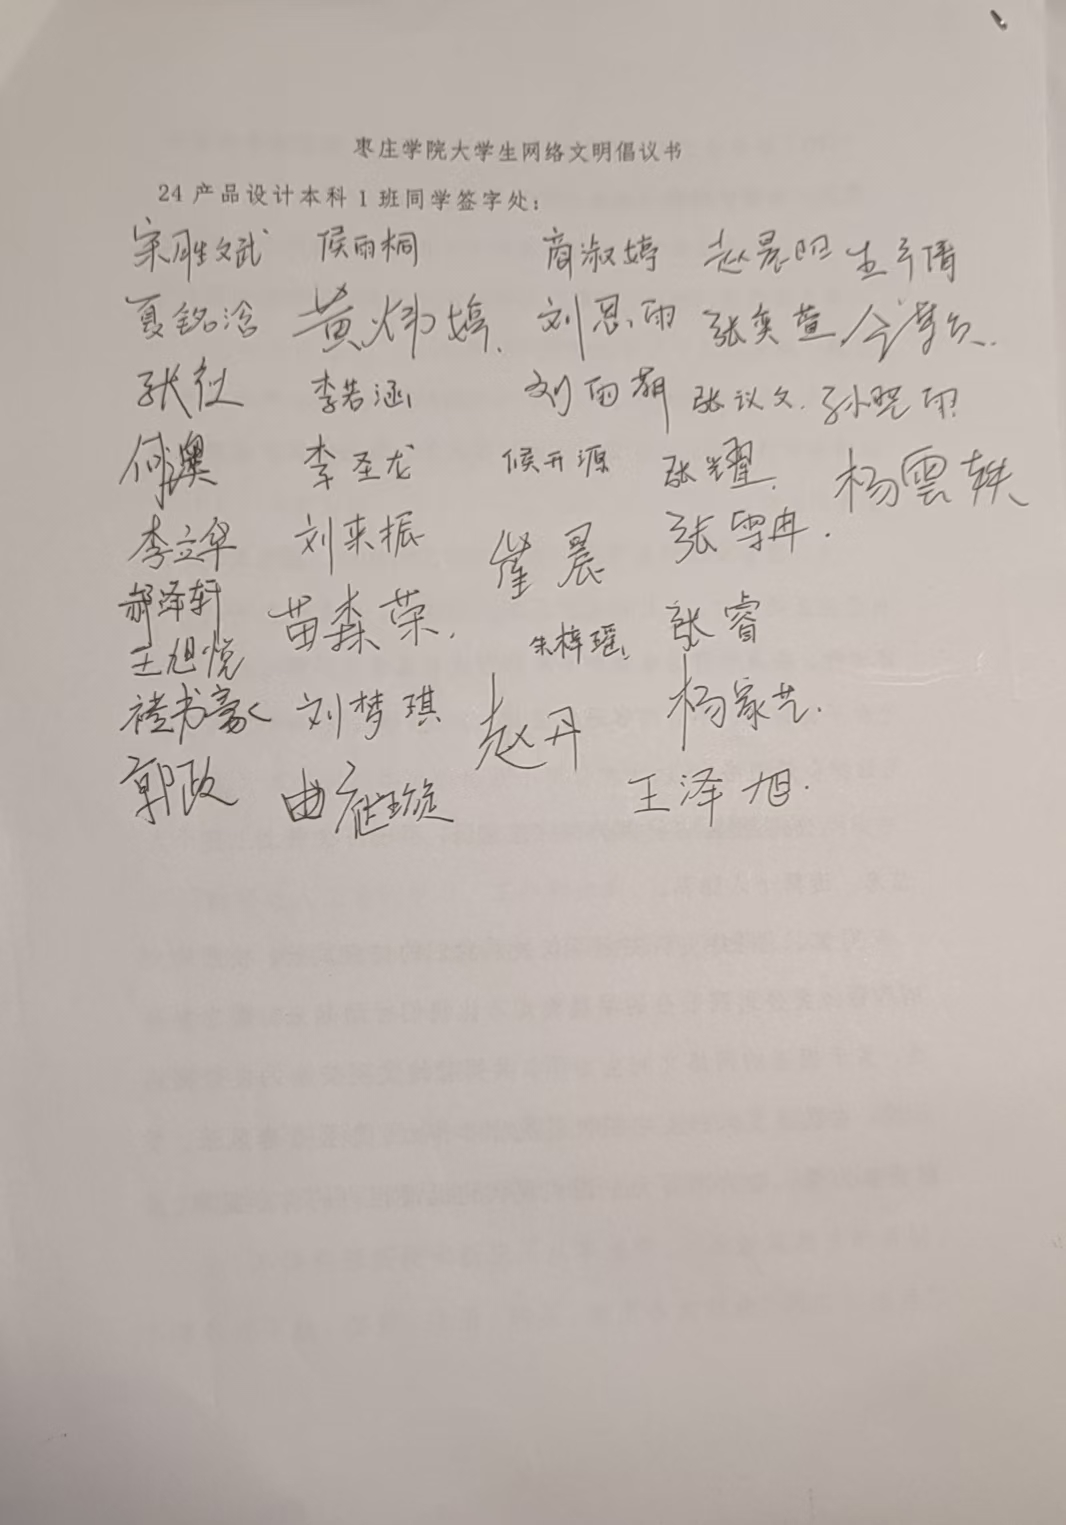 枣庄学院大学生网络文明倡议书
24 产品设计本科 1 班同学签字处：
宋胜文斌 侯雨桐 商淑婷 赵晨阳
夏铭浛 黄炜婷. 刘思雨 张奕萱
张 李若涵 刘雨 张议文. 孙晓雨
何澳 李圣龙 侯开源 张耀. 杨雲轶
李立华 刘来振 崔晨 张雪冉.
郝泽轩 苗森荣. 朱梓瑶 张睿
王旭悦
褚书豪 刘梦琪 赵丹 杨家艺.
郭政 曲璇 王泽旭.